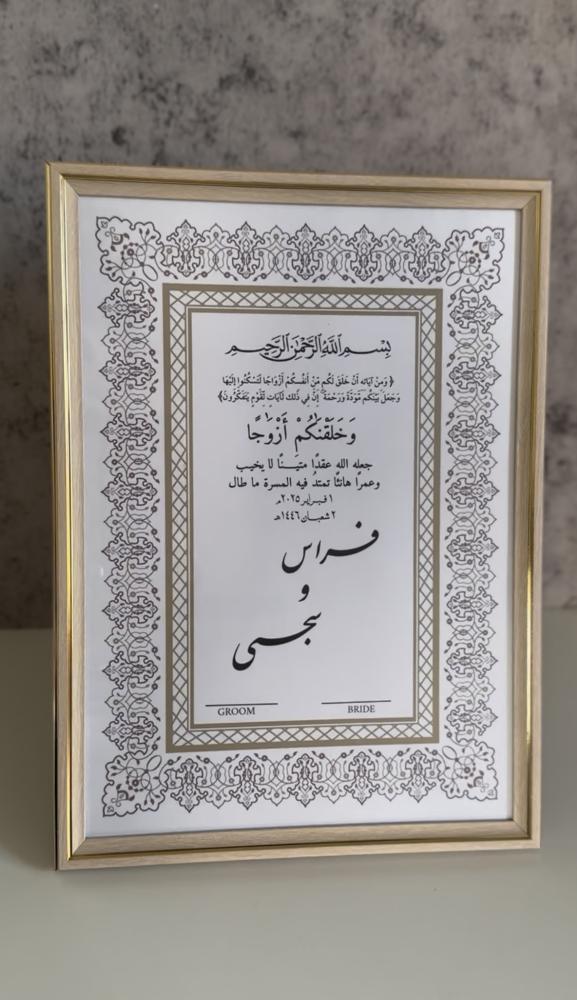 بِسْمِ ٱللَّهِ ٱلرَّحْمَٰنِ ٱلرَّحِيمِ
﴿ وَمِنْ آيَاتِهِ أَنْ خَلَقَ لَكُم مِّنْ أَنفُسِكُمْ أَزْوَاجًا لِّتَسْكُنُوا إِلَيْهَا
وَجَعَلَ بَيْنَكُم مَّوَدَّةً وَرَحْمَةً ۚ إِنَّ فِي ذَٰلِكَ لَآيَاتٍ لِّقَوْمٍ يَتَفَكَّرُونَ﴾
وَخَلَقْنَٰكُمْ أَزْوَٰجًا
جعله الله عقدًا متيـنـًا لا يخيب
وعمرًا هانئًا تمتدُ فيه المسرة ما طال
١ فبراير ٢٠٢٥م
٢ شعبان ١٤٤٦هـ
فراس
و
GROOM BRIDE